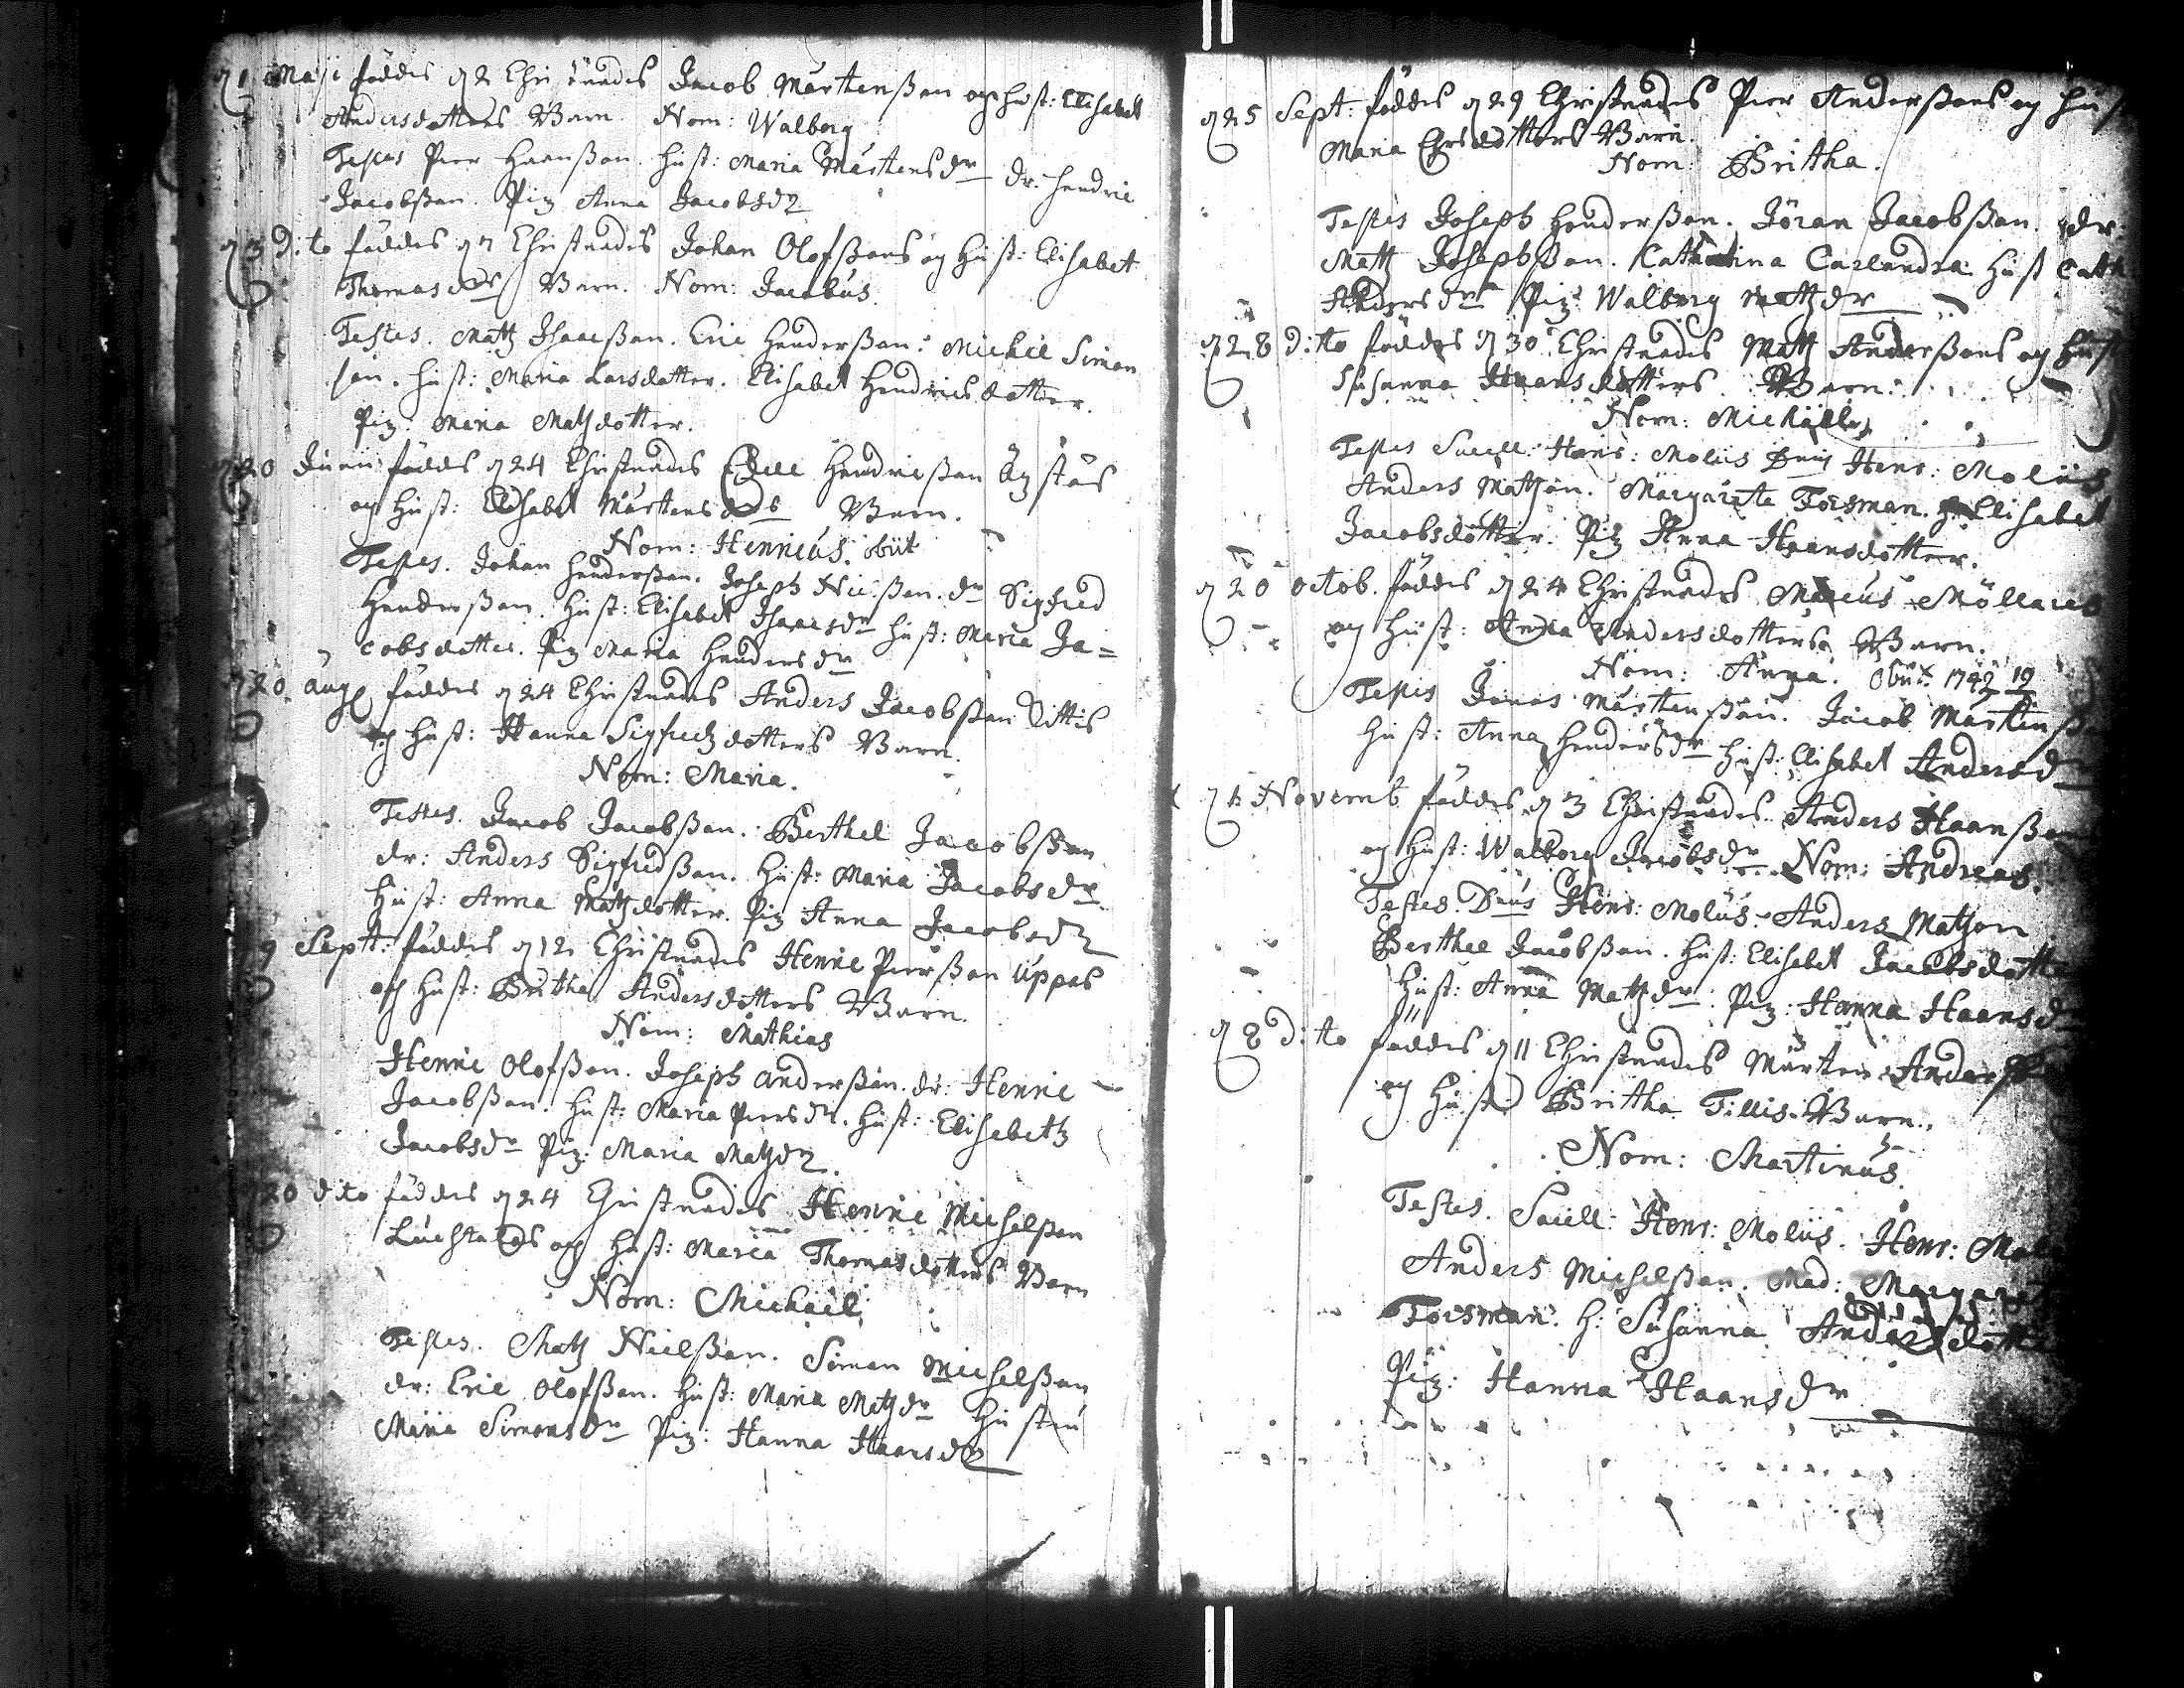 1 Maji föddes 2 Christnades Jacob Mårtenßan och hust: Elisabet
Andersdotters Barn. Nom: Walborg
Testes Pier Haanßan. hust: Maria Mårtensdr dr. Hendric
Jacobßan. Pig Anna Jacobsdr
3 Dito föddes 7 Christnades Johan Olofßans og Hust: Elisabet
Thomasdrs Barn. Nom: Jacobus.
Testes. Matz Isaacßan. Eric Henderßan. Michel Simon
san. hust: Maria Larsdotter. Elisabet Hendricsdotter.
Pig: Maria Matzdotter.
20 Junii födds 24 Christnades Hendricßan
og Hust: Elisabet Mårtensdrs Barn.
Nom: Henricus. obiit
Testes. Johan Henderßan. Joseph Nilßan. dr Sigfred
Henderßan. Hust: Elisabet Isaacsdr hust: Maria Ja=
cobsdotter. Pig Maria Hendersdr
20. Aug föddes 24 Christnades Anders Jacobßan
og hust: Hanna Sigfredzdotters Barn.
Nom: Maria.
Testes. Jacob Jacobßan. Berthel Jacobßan
dr: Anders Sigfredßan. Hust: Maria Jacobsdr
Hust: Anna Matzdotter. Pig Anna Jacobsdr
9 Sept: föddes 12 Christnades Henric Pierßan Uppas
och Hust: Britha Andersdotters Barn.
Nom: Mathias
Henric Olofßan. Joseph Anderßan. dr: Henric
Jacobßan. Hust: Maria Piersdr. Hust: Elisabeth
Jacobsdr Pig: Maria Matzdr.
20 dito föddes 24 Christnades Henric Michelßan
och Hust: Maria Thomasdotters Barn
Nom: Michael.
Testes. Matz Nielßan. Simon Michelßan
dr: Eric Olofßan. Hust: Maria Matzdr Hustru
Maria Simonsdr Pig: Hanna Haansdr
25 Sept: föddes 29 Christnades Pier Anderßans og Hust
Maria Ersdotters Barn.
Nom: Britha.
Testes Joseph Henderßan. Jöran Jacobßan. dr
Matz Josephßan. Katharina Carlandra. Hust Cath
Andersdr Pig: Walborg Matzdr
28 dito föddes 30 Christnades Matz Anderßans og Hust
Susanna Haansdotters Barn.
Nom: Michäel
Testes Hens: Moliis Hens: Moliis
Anders Matzon. Margareta Forsman. Elisabet
Jacobsdotter. Pig Anna Haansdotter.
20 Octob. föddes 24 Christnades Marcus Möllares
og Hust: Andersdotters Barn.
Nom: Anna. Obiit. 1742 19
Testes Jonas Mårtenßan. Jacob Mårtenßa
Hust: Anna Hendersdr Hust: Elisabet Andersdr
1 Novemb föddes 3 Christnades Anders Haanßans
og Hust: Walborg Jacobsdr Nom: Andreas.
Testes. Dnus Henr: Moliis. Anders Matzon
Berthel Jacobßan. Hust: Elisabet Jacobsdotte
Hust: Anna Matzdr. Pig: Hanna Haansdr
8 Dito föddes 11 Christnades Mårten Anderß
og Hust Britha Tillis Barn.
Nom: Martinus.
Testes. Henr: Moliis. Henr: Mol
Anders Michelßan. Mad: Margaret
Forsman. H: Susanna Andersdotte
Pig: Hanna Haansdr